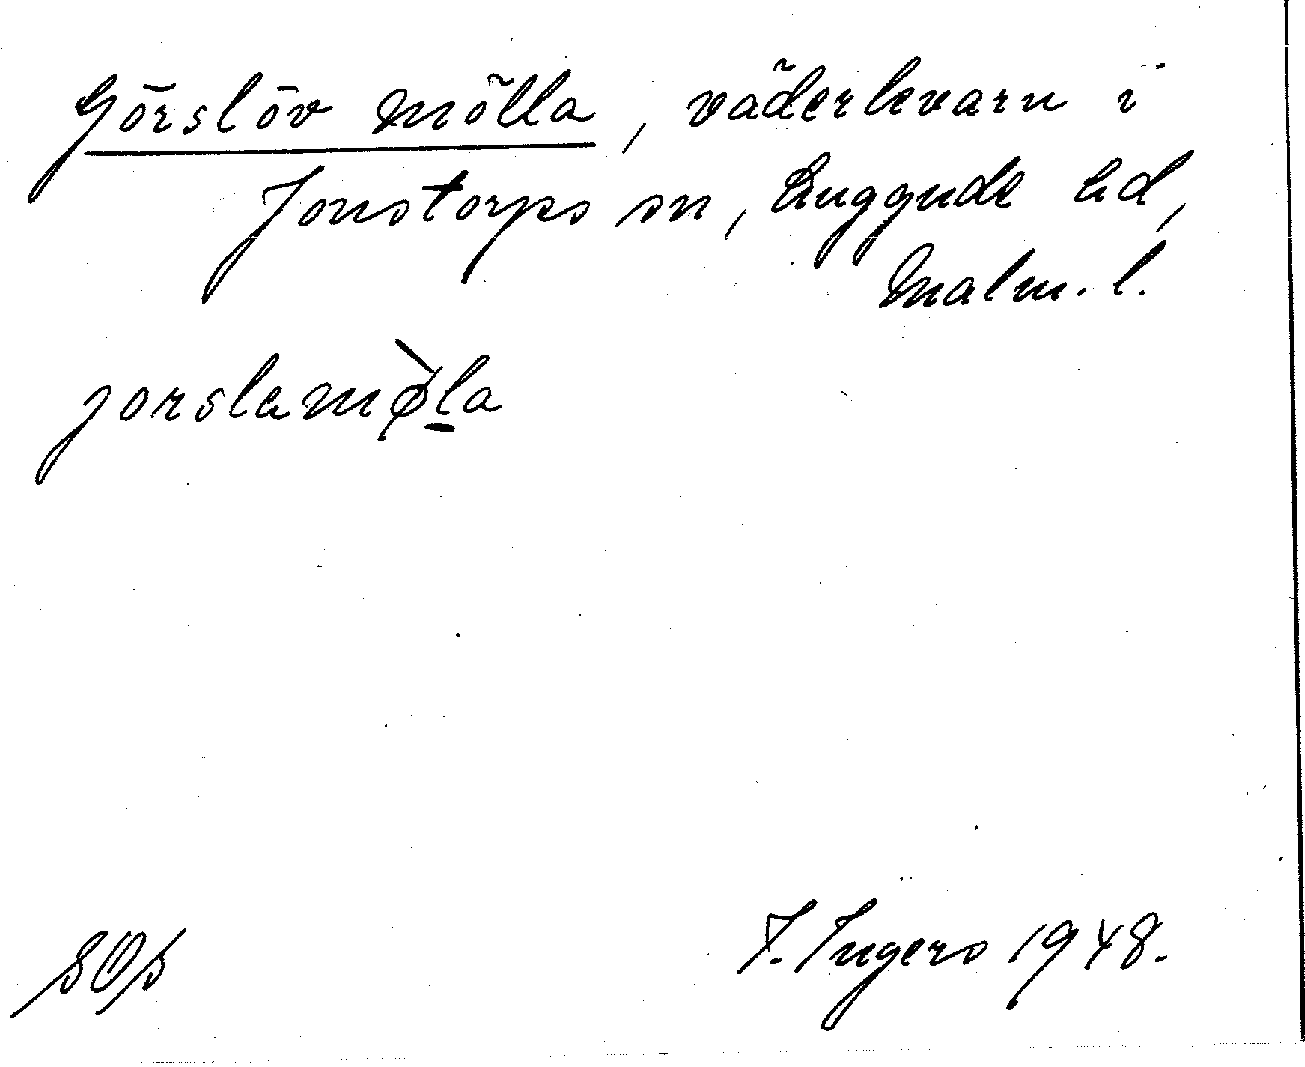 Görslöv Mölla, väderkvarn i
Jonstorps sn, Luggude hd,
Malm. l.
jorslamø̀la
SOS
I. Ingers 1948.